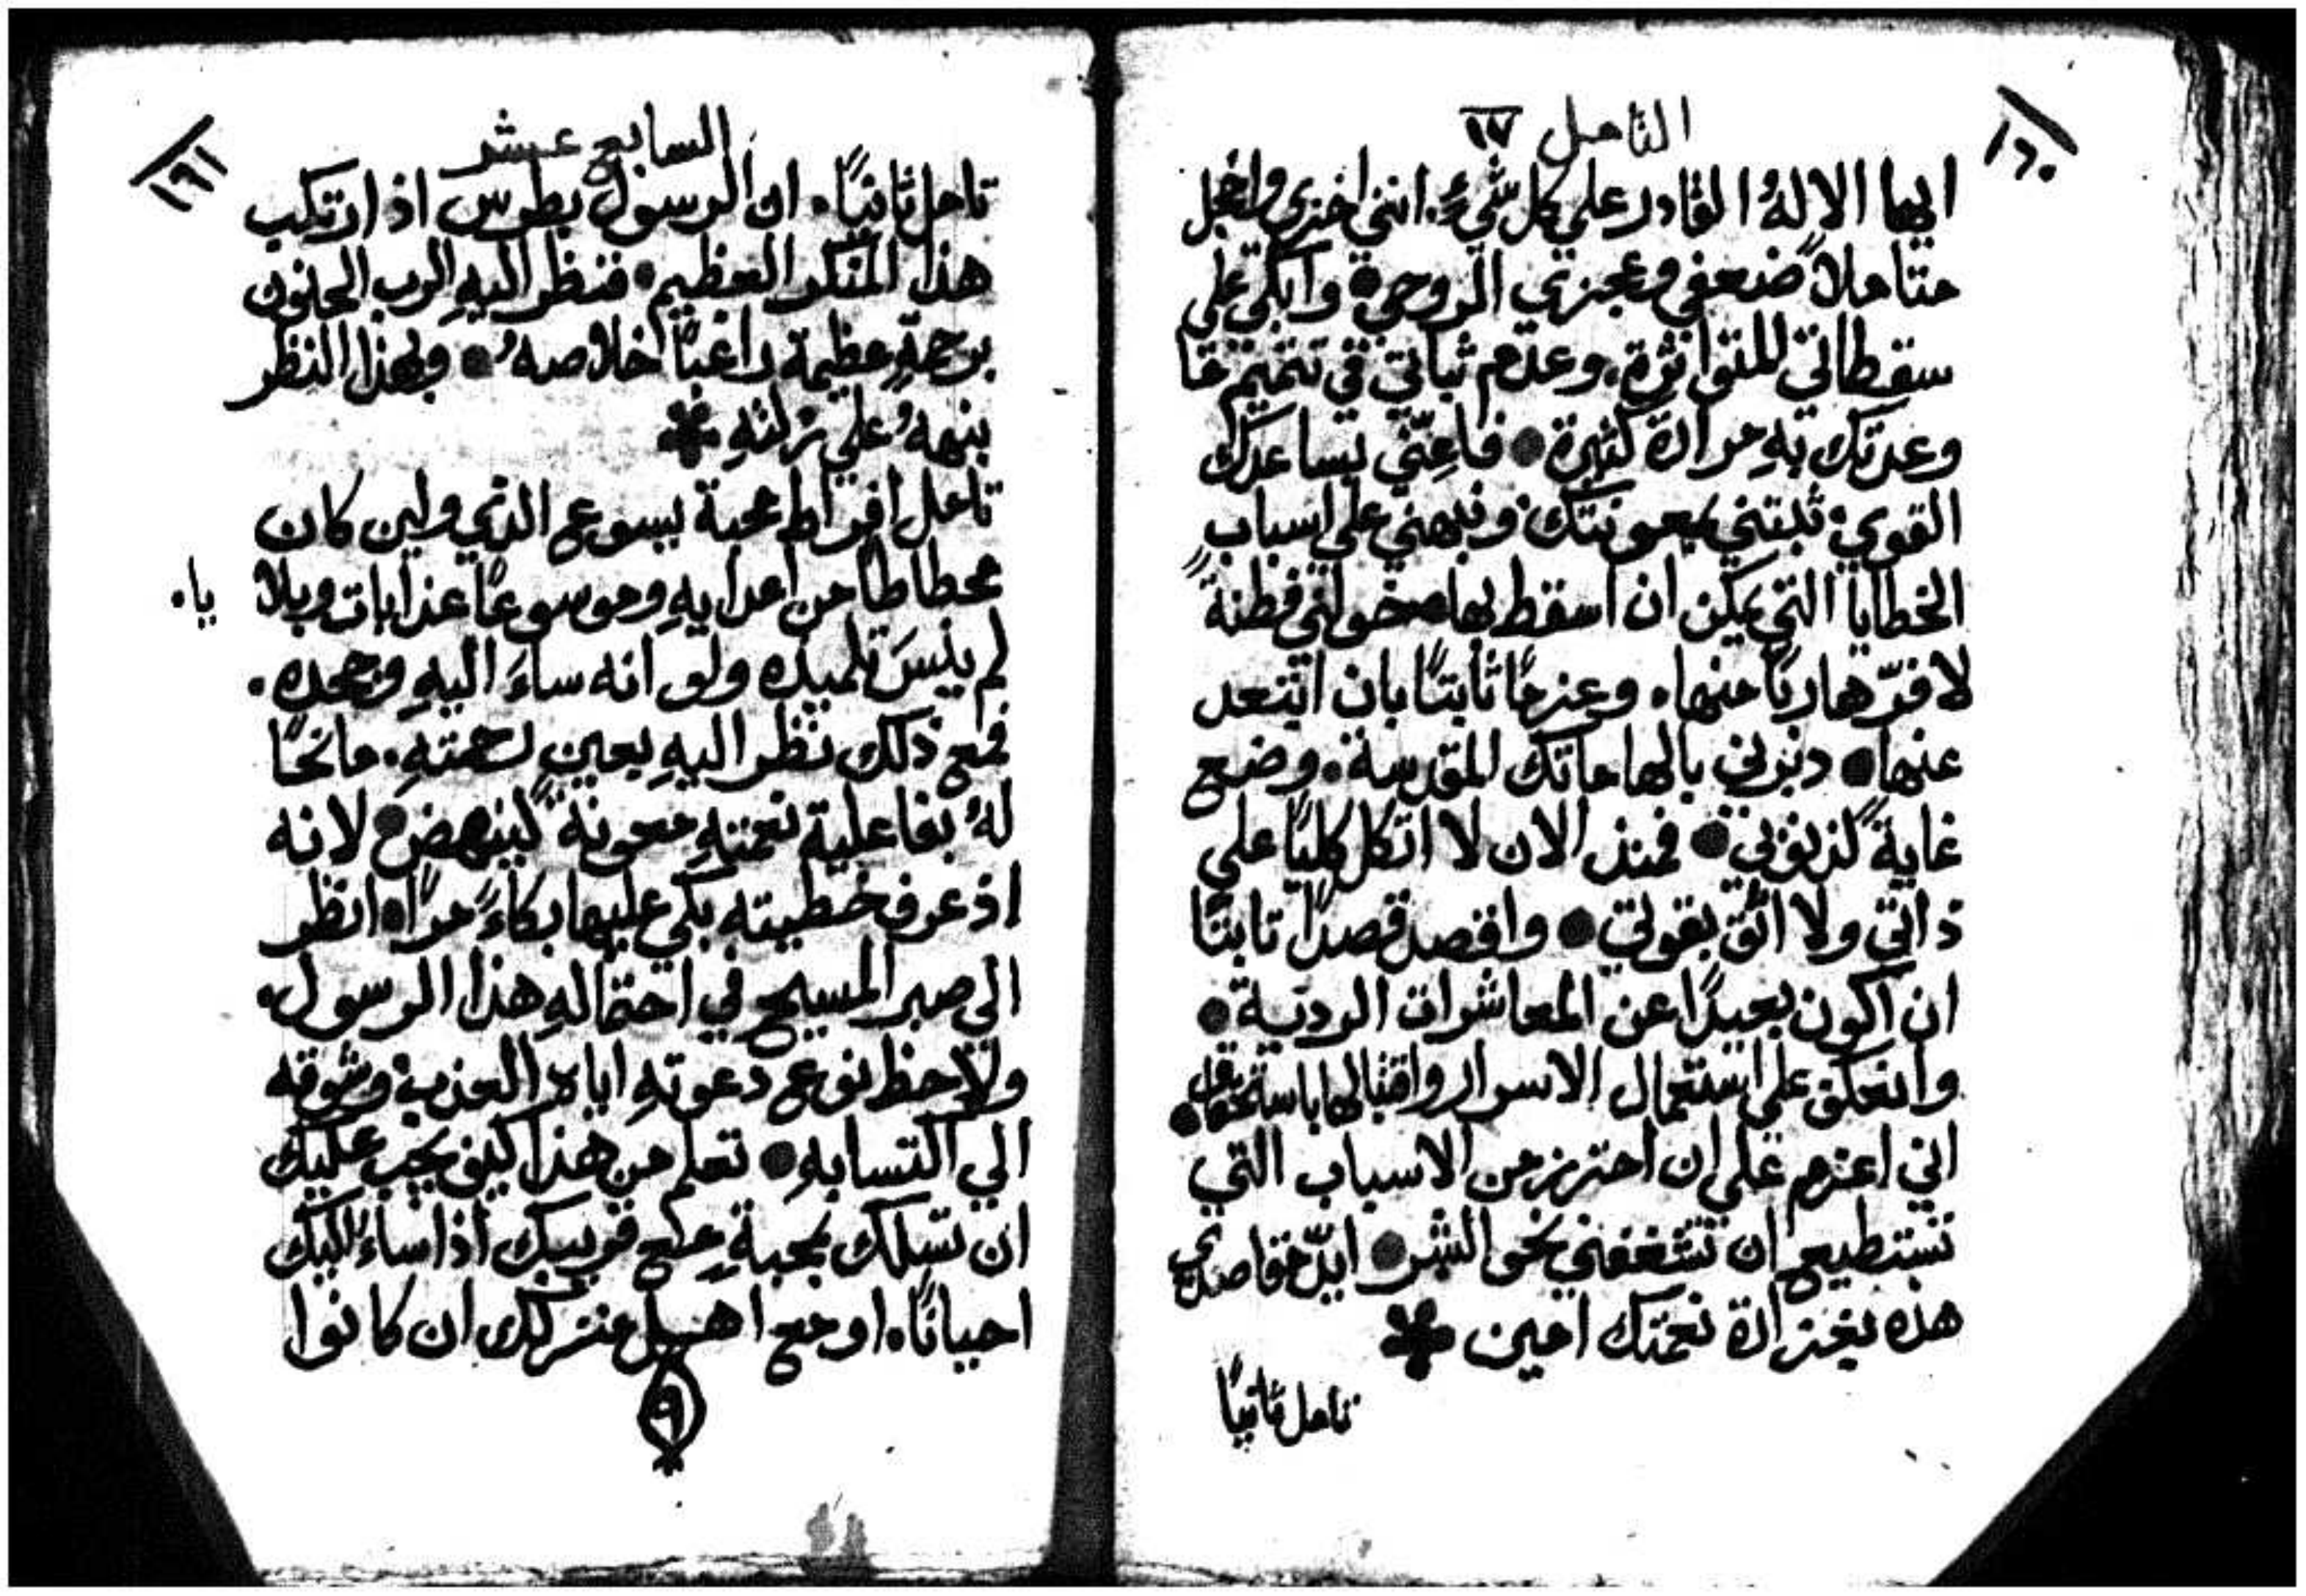 ١٦٠
التامل ١٧
ايها الالهُ القادر على كل شيءٍ. انني اخزي واخجل
متاملاً ضعفي وعجزي الروحي • وابكي علي
سقطاتي المتواترة. وعدم ثباتي في تتميم ما
وعدتك بهِ مرارة كثيرة • فاعنّي بساعدك
القوي. ثبتني بمعونتك. ونبهني علي اسباب
الخطايا التي يمكن ان اسقط بها. خولني فطنةً
لافرّ هاربًا منها. وعزمًا ثابتًا بان ابتعد
عنها • دبرني بالهاماتك المقدسة. وضع
غايةً لذنوبي • فمنذ الان لا اتكل كليًا علي
ذاتي ولا اثق بقوتي • واقصد قصدًا ثابتًا
ان اكون بعيدًا عن المعاشرات الردية •
وانعكف علي استعمال الاسرار واقتبالها باستحقاق •
اني اعزم علي ان احترز من الاسباب التي
تستطيع ان تشغفني نحو الشر • ايّد مقاصدي
هذه بغزارة نعمتك امين *
تامل ثانيًا
١٦١
السابع عشر
تامل ثانيًا. ان الرسول بطرس اذ ارتكب
هذا المنكر العظيم • فنظر اليهِ الرب الحنون
برحمةٍ عظيمة راغبًا خلاصهُ • وبهذا النظر
ينبههُ علي زلتهِ *
تامل افراط محبة يسوع الذي ولين كان
محطاطًا من اعدايهِ وموسوعًا عذابات وبلا
يا.
لم ينسَ تلميذه ولو انه ساءَ اليهِ وجحده.
فمع ذلك نظر اليهِ بعين رحمتهِ. مانحًا
لهُ بفاعلية نعمتهِ معونةً لينهض • لانه
اذ عرف خطيته بكي عليها بكاءً مرًا • انظر
الي صبر المسيح في احتمالهِ هذا الرسول.
ولاحظ نوع دعوتهِ اياه العذب. وشوقه
الي اكتسابهِ • تعلم من هذا كيف يجب عليك
ان تسلك بمحبةٍ مع قريبك اذا ساءَ اليك
احيانًا. او مع اهل منزلك ان كانوا
٩